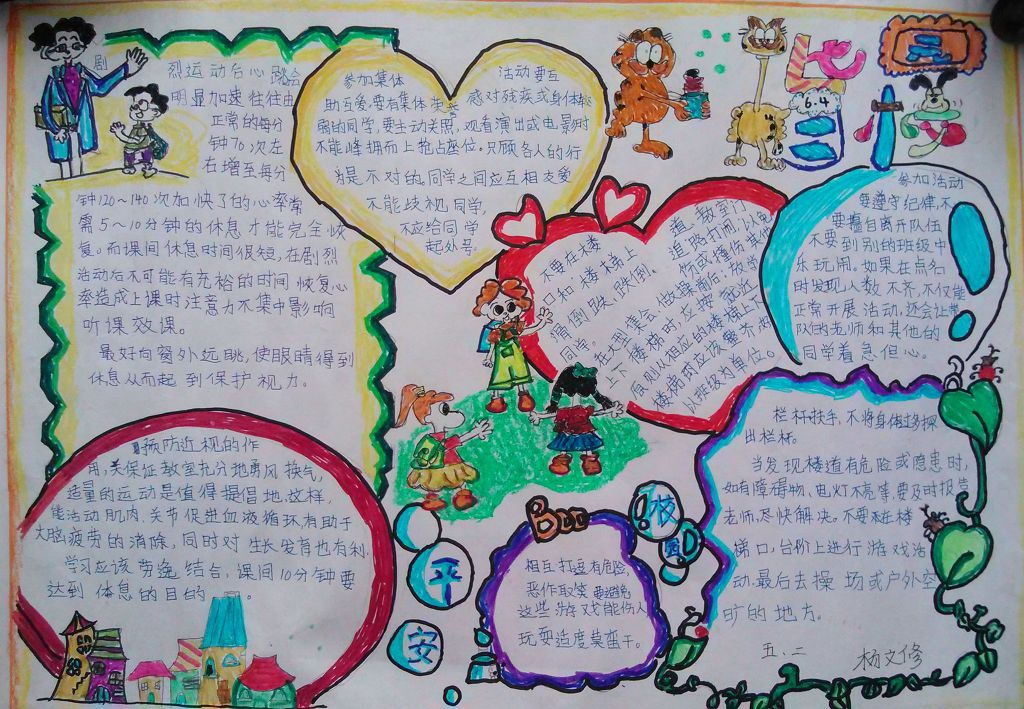 剧
烈运动后心跳会
明显加速往往由
正常的每分
钟70次左
右增至每分
钟120~140次加快了的心率常
需5~10分钟的休息才能完全恢
复。而课间休息时间很短,在剧烈
活动后不可能有充裕的时间恢复心
率造成上课时注意力不集中影响
听课效课。
最好向窗外远眺,使眼睛得到
休息从而起到保护视力。
预防近视的作
用,关保证教室充分地通风换气,
适量的运动是值得提倡地这样,
能活动肌肉、关节促进血液循环,有助于
大脑疲劳的消除,同时对生长发育也有利.
学习应该劳逸结合,课间10分钟要
达到休息的目的。
参加集体活动要互
助互爱,要有集体荣誉感对残疾或身体较
弱的同学,要主动关照,观看演出或电影时
不能蜂拥而上抢占座位。只顾各人的行
为是不对的,同学之间应互相友爱
不能歧视同学,
不应给同学
起外号。
6.4
不要在楼道、教室门
口和楼梯上追路打闹,以免
滑倒跌、跌倒、伤或撞伤其他
同学。
在大型集会、做操前后:放学
上下楼梯时,应按就近
原则从相应的楼梯上下
楼梯时应该整齐对
以班级为单位。
参加活动
要遵守纪律,不
要擅自离开队伍
不要到别的班级中
乐玩闹。如果在点名
时发现人数不齐,不仅能
正常开展活动,还会让带
队归老师和其他的
同学着急但心。
栏杆扶手,不将身体过多探
出栏杯。
当发现楼道有危险或隐患时,
如有障碍物、电灯不亮等,要及时报告
老师,尽快解决。不要在楼
梯口,台阶上进行游戏活
动,最后去操场或户外空
旷的地方。
相互打逗有危险,
恶作取笑要避免
这些游戏能伤人
玩耍适度莫蛮干。
校
园
平
安
五、二 杨文修